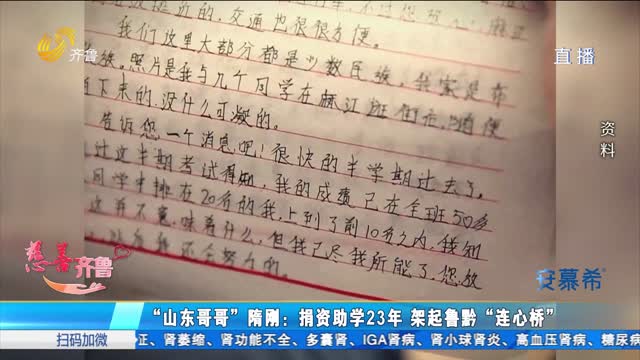 齐鲁
直播
资料
交通也很很方便。
我们这里大部分都是少数民族,我家是布
照片是我与几个同学在麻江逛街市,随便
下来的,没什么可凝的。
告诉您一个消息吧!很快的半学期过去了。
过这半期考试得知,我的成绩已在全班50多
同学中排在20名的我,上到了前10名之内,我知
味着什么,但我已尽我所能了,您放
慈善齐鲁
安慕希
“山东哥哥”隋刚:捐资助学23年 架起鲁黔“连心桥”
扫码加微
正、肾萎缩、肾功能不全、多囊肾、IGA肾病、肾小球肾炎、高血压肾病、糖尿病